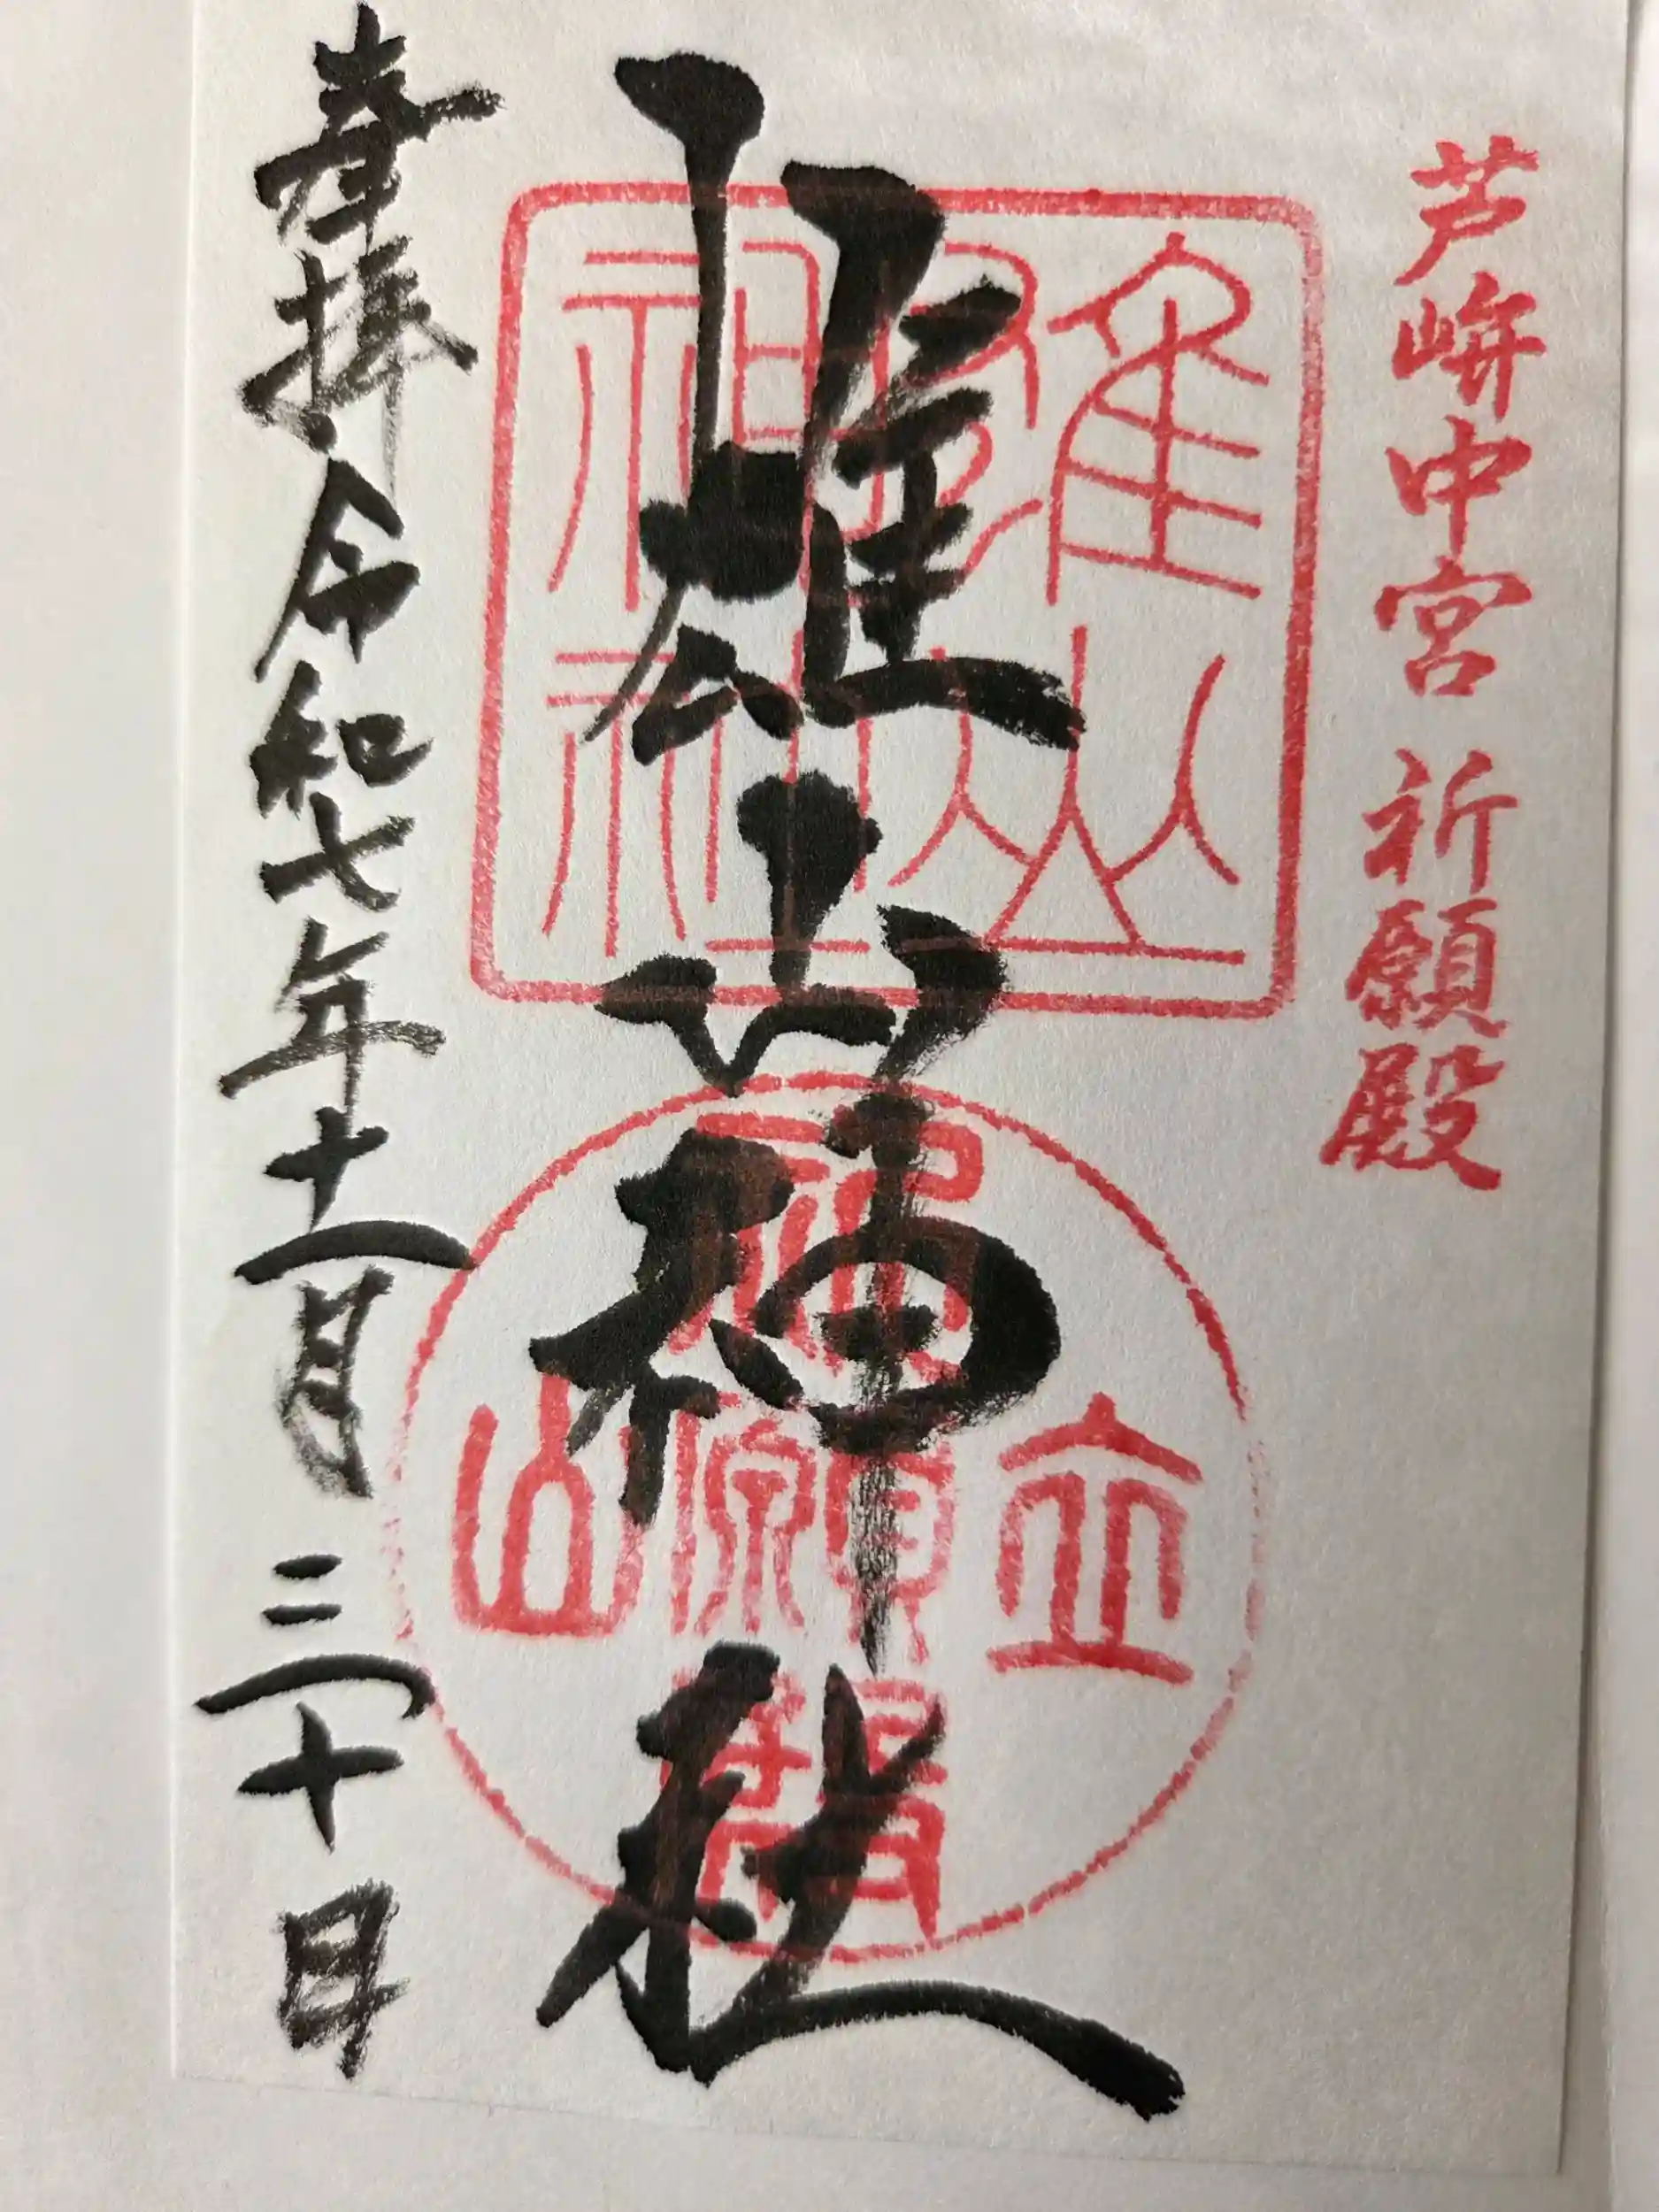 芦峅中宮 祈願殿
雄山神社
雄山
神社
立山
祈願殿
奉拝 令和七年十一月三十日